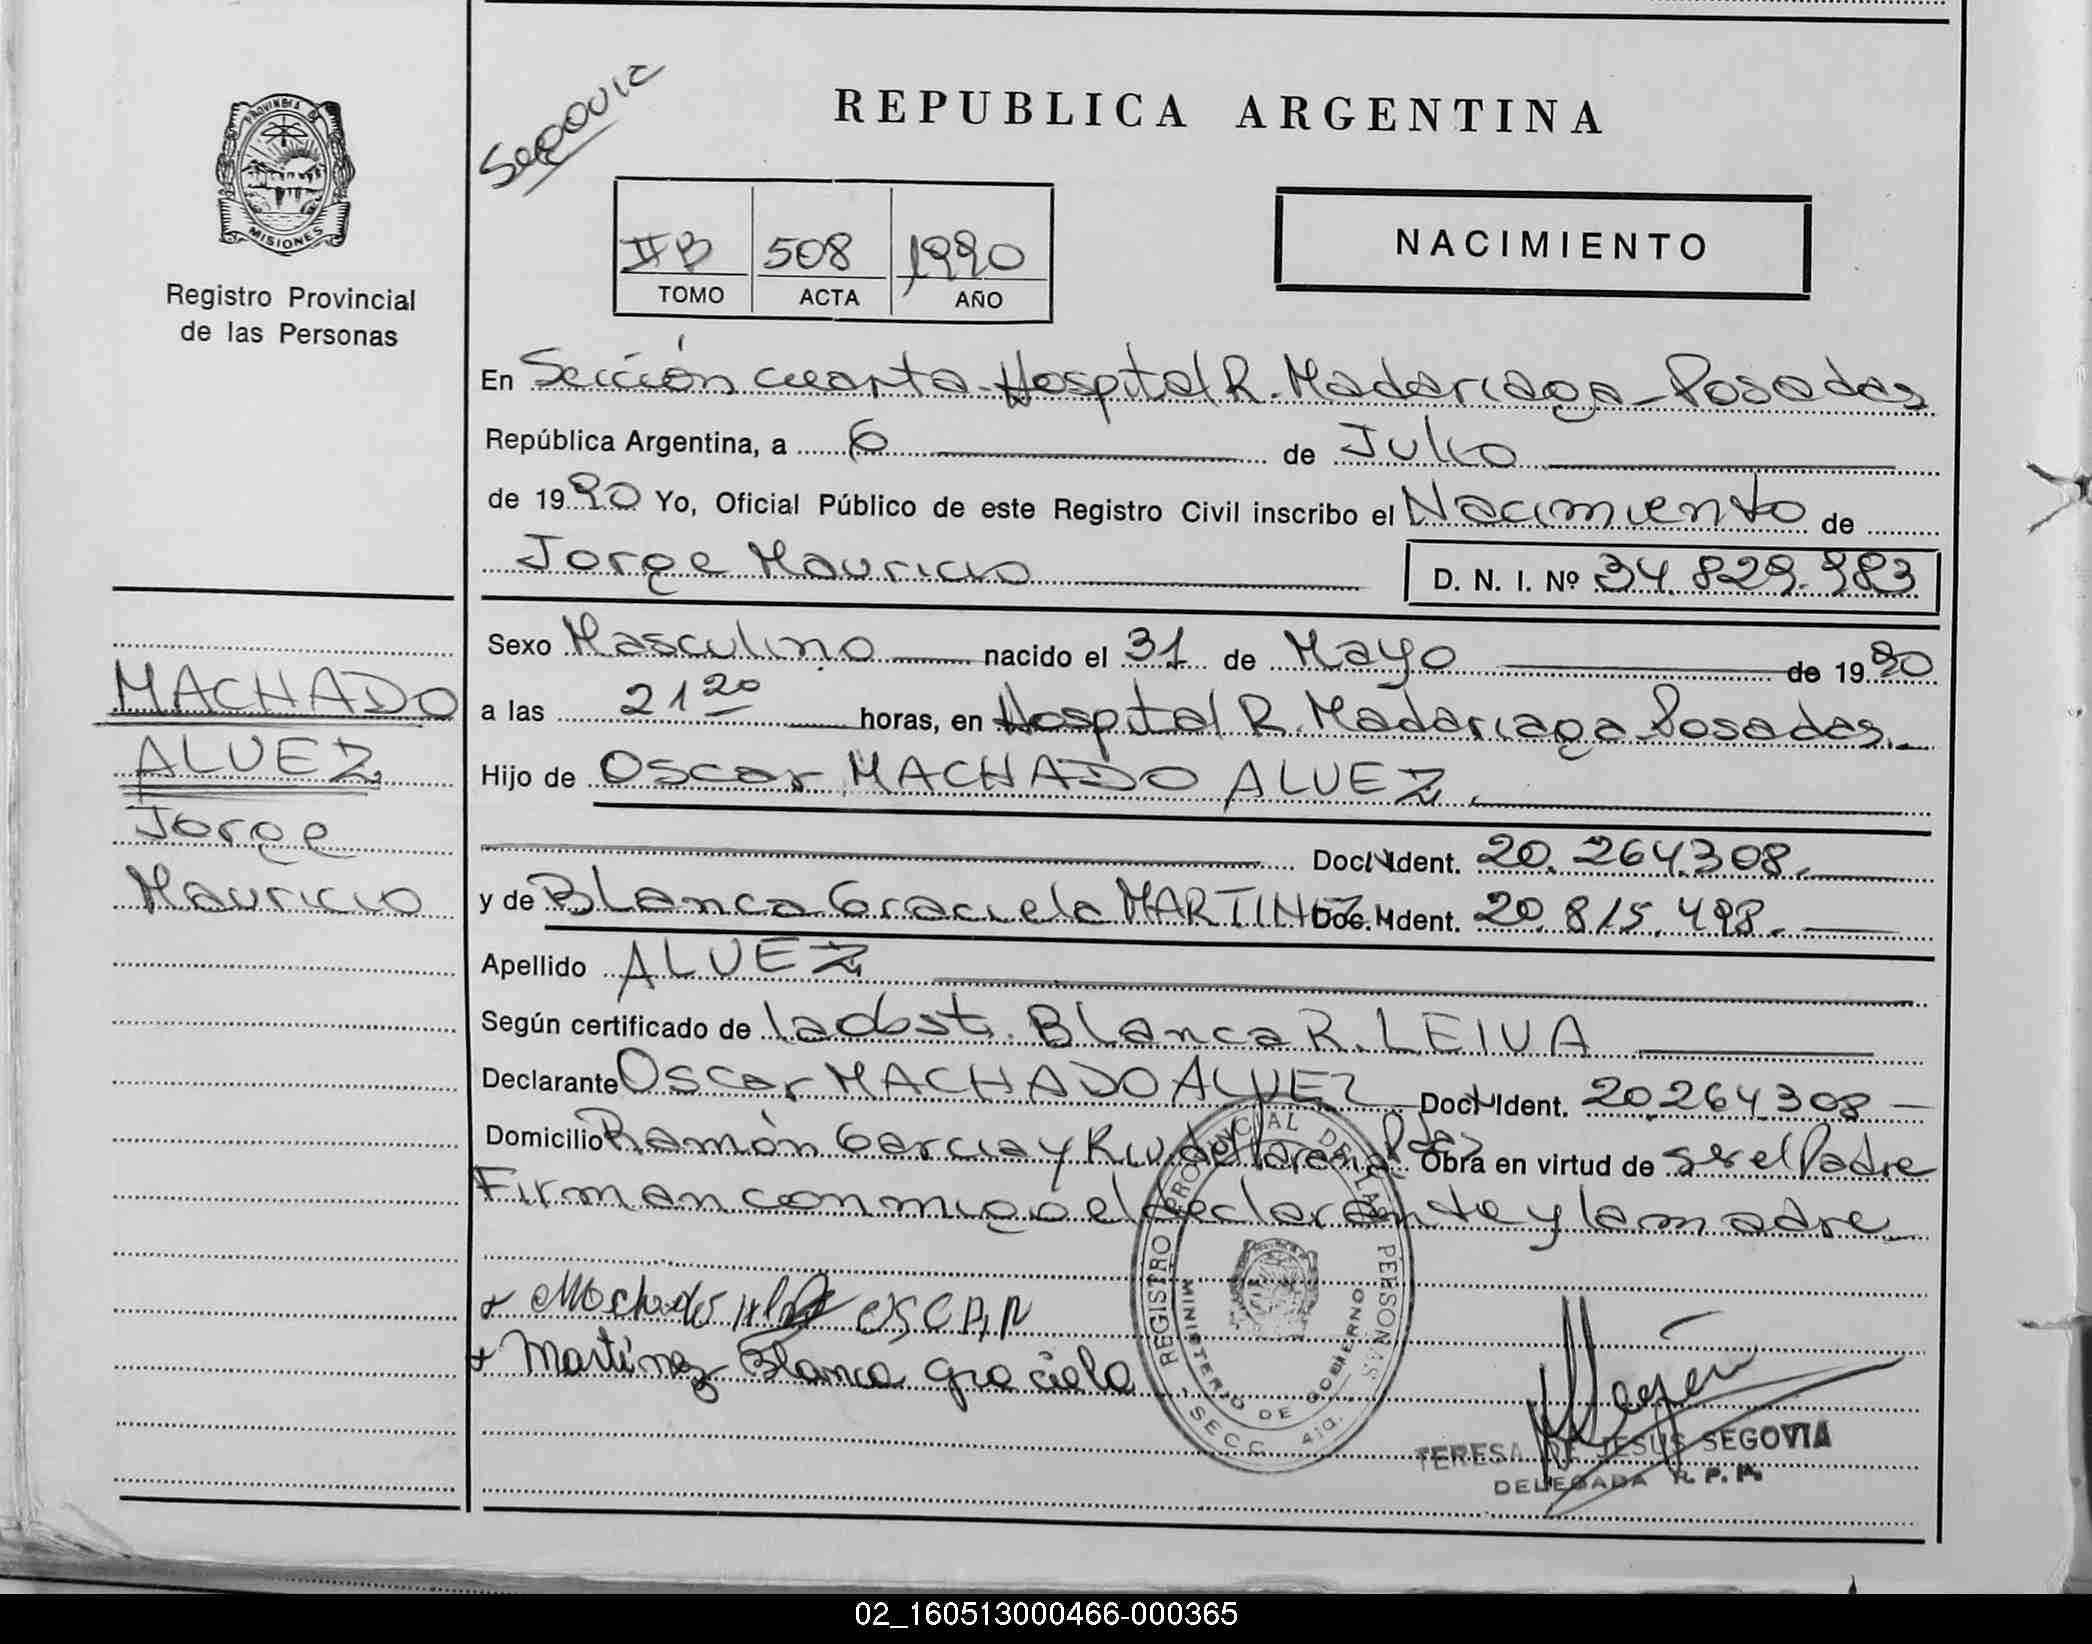 PROVINCIA DE
MISIONES
Registro Provincial
de las Personas
MACHADO
ALVEZ
Jorge
Mauricio
Segovia
REPUBLICA ARGENTINA
IIB 508 1990
TOMO ACTA AÑO
NACIMIENTO
En Sección cuarta-Hospital R. Madariaga-Posadas
República Argentina, a 6 de Julio
de 1990 Yo, Oficial Público de este Registro Civil inscribo el Nacimiento de
Jorge Mauricio D. N. I. Nº 34.829.983
Sexo Masculino nacido el 31 de Mayo de 1990
a las 21 20 horas, en Hospital R. Madariaga Posadas.
Hijo de Oscar MACHADO ALVEZ.
Doc. Ident. 20.264.308.
y de Blanca Graciela MARTINEZ Doc. Ident. 20.815.498.
Apellido ALVEZ
Según certificado de la obst. Blanca R. LEIVA
Declarante Oscar MACHADO ALVEZ Doc. Ident. 20.264.308
Domicilio Ramón Garcia y Obra en virtud de ser el Padre
Firman conmigo el declarante y la madre
Machado OSCAR
Martínez Blanca graciela
REGISTRO PROVINCIAL DE LAS PERSONAS
MINISTERIO DE GOBIERNO
SECC. 4ta.
TERESA DE JESUS SEGOVIA
DELEGADA R. P. P.
02_160513000466-000365